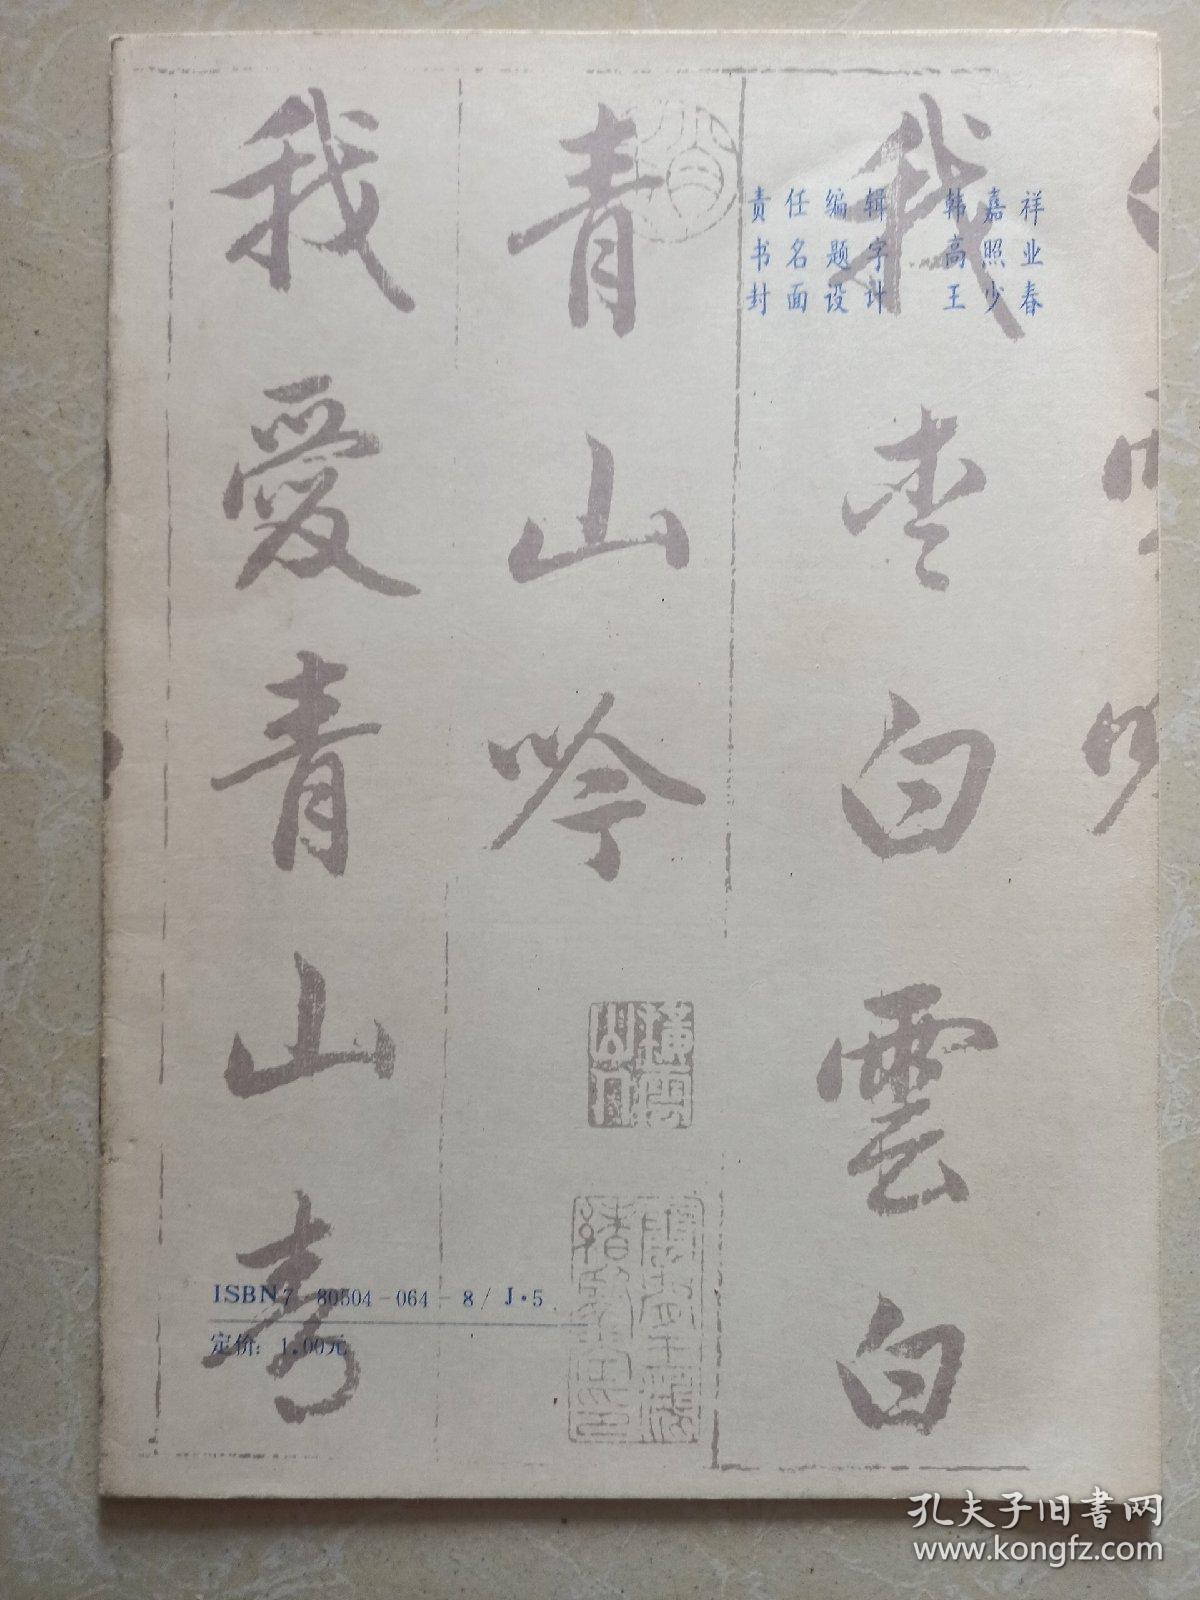 责任编辑 韩嘉祥
书名题字 高照业
封面设计 王少春
我
白雲白
青山吟
橫雲山人
我愛青山
ISBN7-80504-064-8/J·5
定价：1.00元
孔夫子旧书网
www.kongfz.com